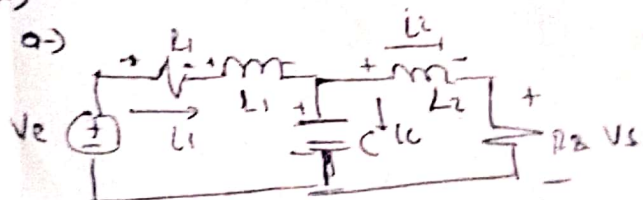 a-)
R1 i2
L1 L2
Ve i1 C ic R2 Vs